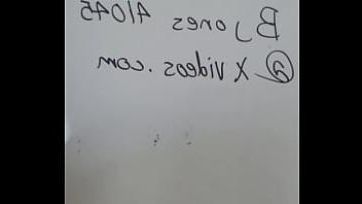 BJones 41045
@Xvideos.com